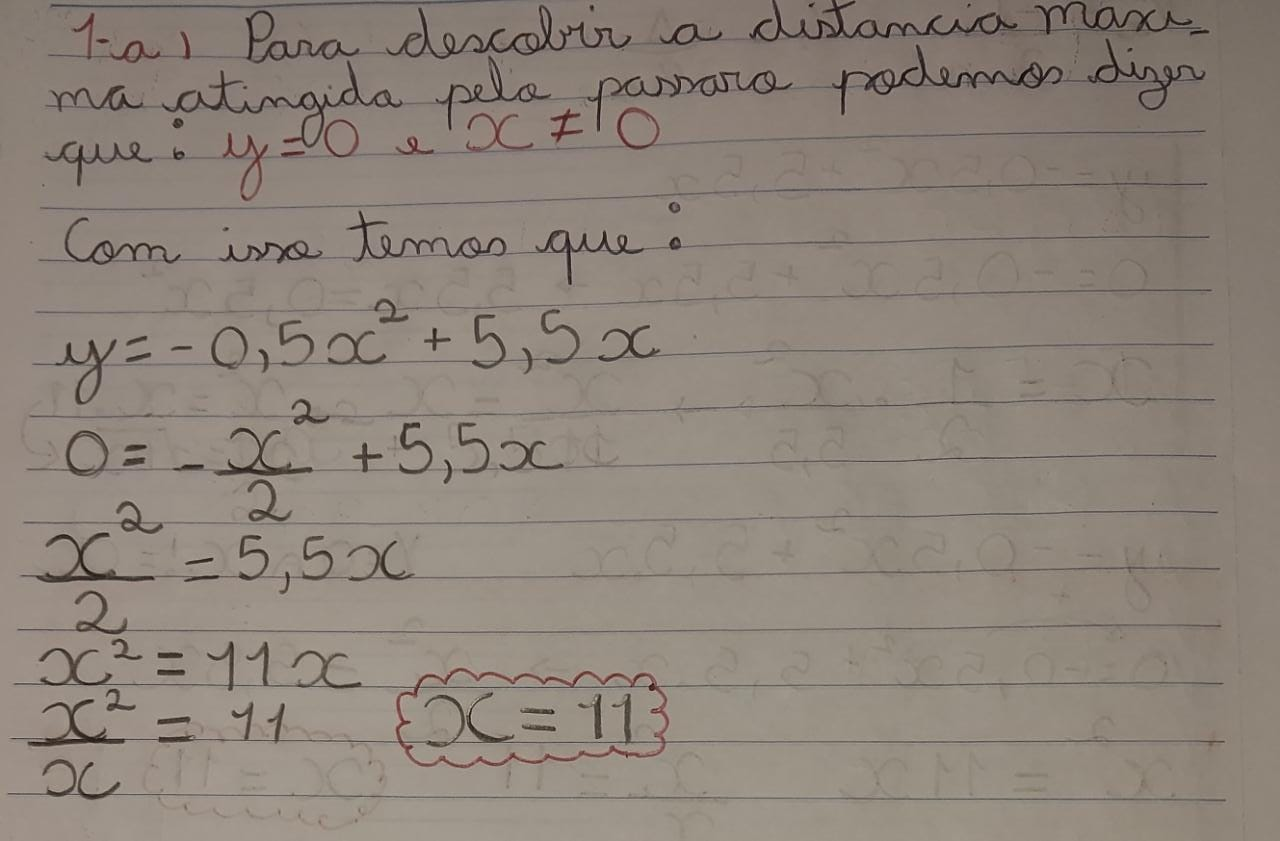 1-a) Para descobrir a distancia maxi-
ma atingida pelo passaro podemos dizer
que: y=0 e x ≠ 0
Com isso temos que:
y = -0,5x² + 5,5x
0 = -x²/2 + 5,5x
x²/2 = 5,5x
x² = 11x
x²/x = 11 x = 11